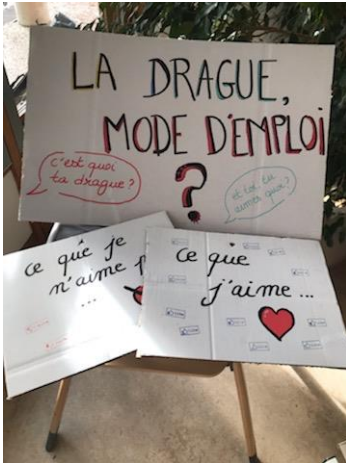 LA DRAGUE,
MODE D'EMPLOI
?
c'est quoi
ta drague?
et toi, tu
aimes quoi?
ce que je
n'aime p
...
ce que
j'aime...